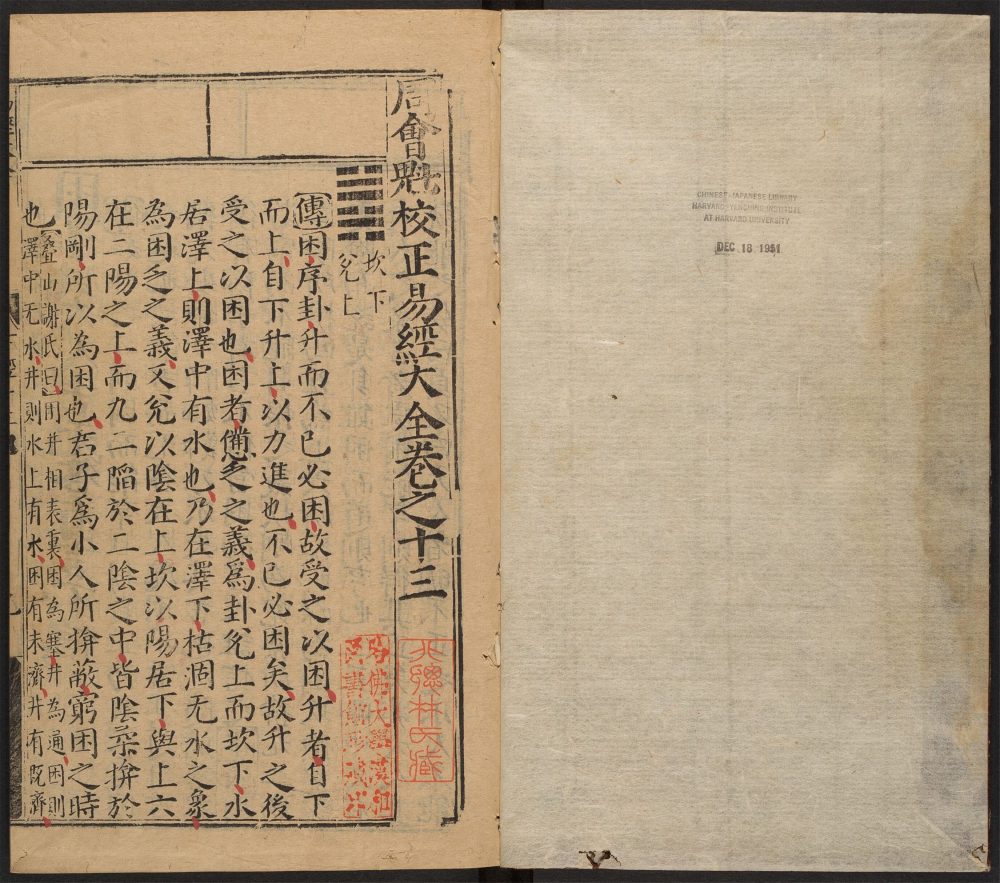 CHINESE-JAPANESE LIBRARY
HARVARD-YENCHING INSTITUTE
AT HARVARD UNIVERSITY
DEC 18 1951
周會魁校正易經大全卷之十三
坎下
兌上
傳困序卦升而不已必困故受之以困升者自下
而上自下升上以力進也不已必困矣故升之後
受之以困也困者憊乏之義為卦兌上而坎下水
居澤上則澤中有水也乃在澤下枯涸无水之象
為困乏之義又兌以陰在上坎以陽居下與上六
在二陽之上而九二陷於二陰之中皆陰柔揜於
陽剛所以為困也君子為小人所揜蔽窮困之時
也
疊山謝氏曰困井相表裏困為塞井為通困則
澤中无水井則水上有水困有未濟井有既濟